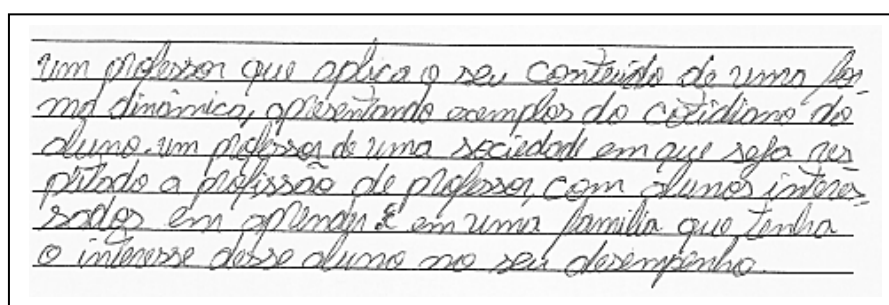 um professor que aplica o seu conteúdo de uma for-
ma dinâmica, apresentando exemplos do cotidiano do
aluno. um professor de uma sociedade em que seja res
peitado a profissão de professor, com alunos interes-
sados em aprender e em uma familia que tenha
o interesse desse aluno no seu desempenho.